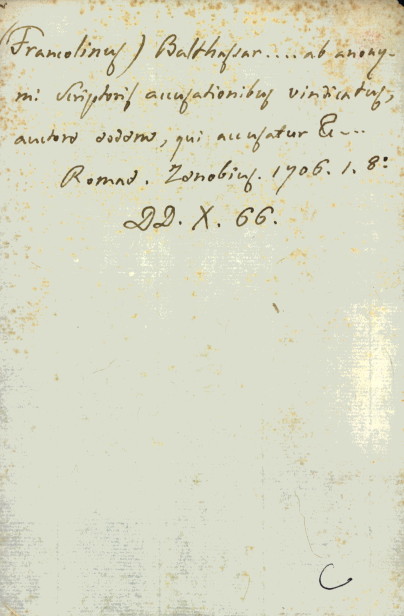 (Francolinus) Balthassar.... ab anony-
mi Scriptoris accusationibus vindicatus,
auctore eodem, qui accusatur &...
Romae. Zenobius. 1706. 1. 8º
DD. X. 66.